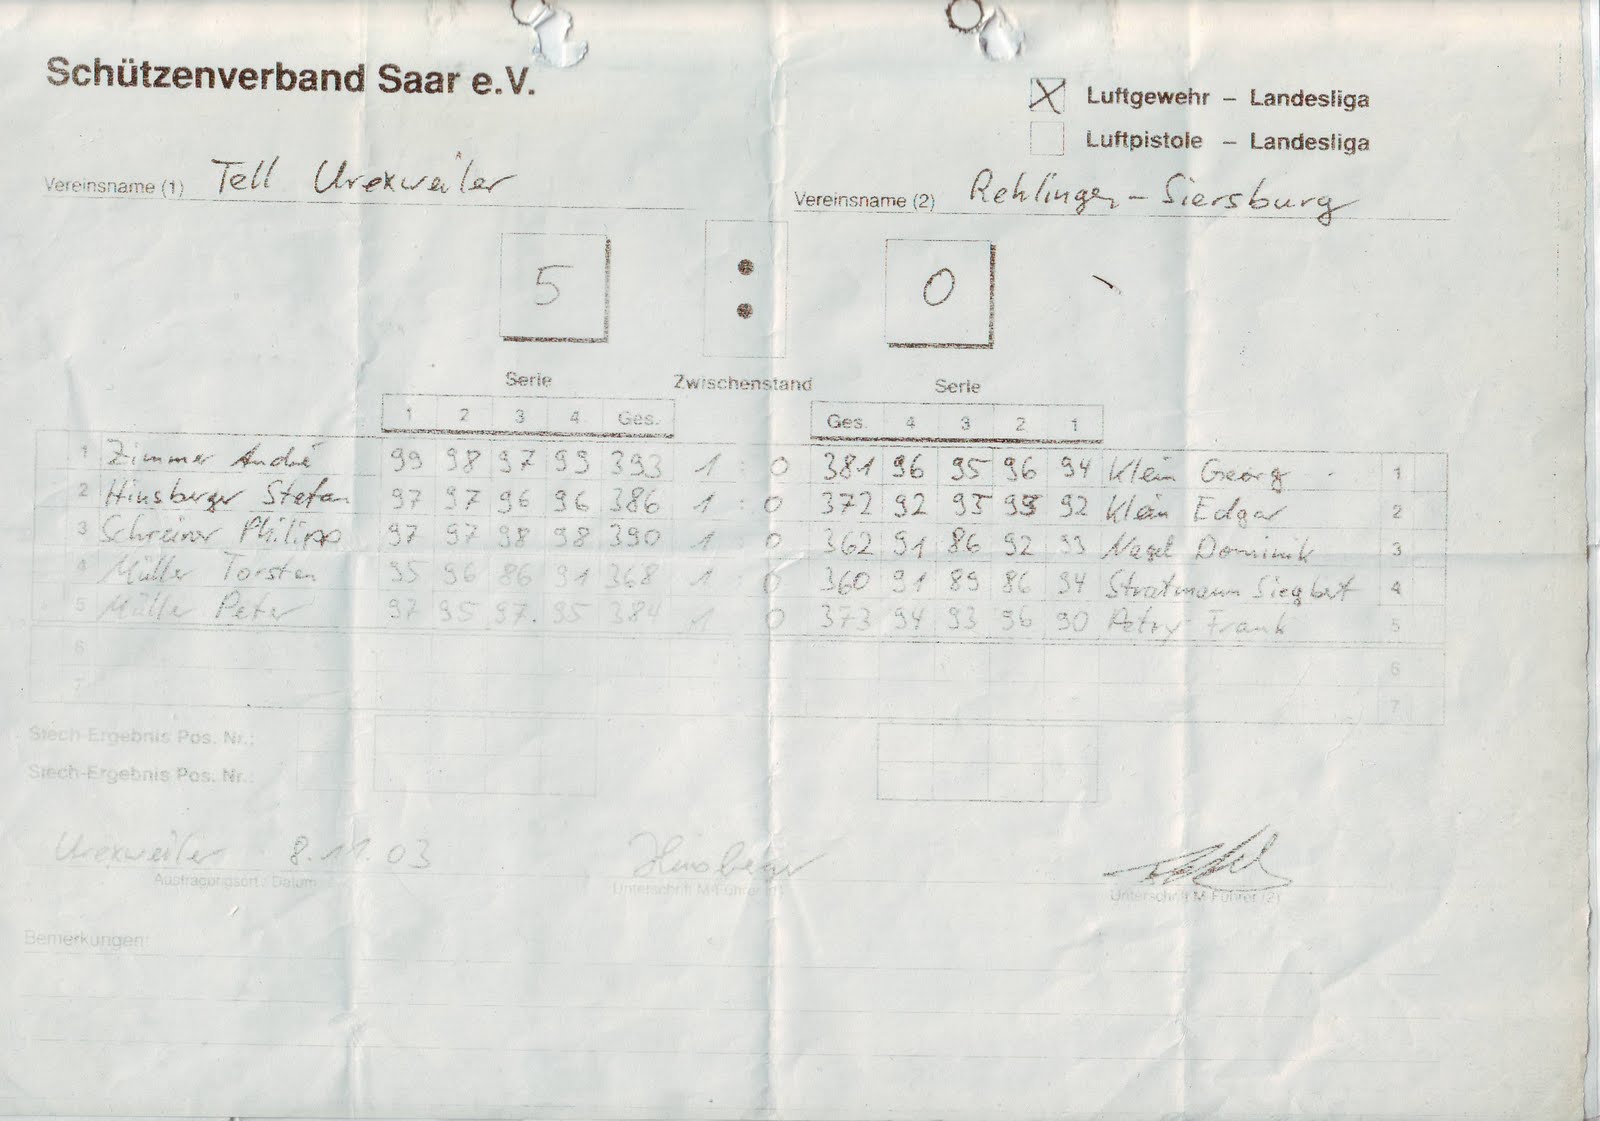 Schützenverband Saar e.V.
X Luftgewehr – Landesliga
Luftpistole – Landesliga
Vereinsname (1) Tell Urexweiler
Vereinsname (2) Rehlingen-Siersburg
5 : 0
Serie Zwischenstand Serie
1 2 3 4 Ges. Ges. 4 3 2 1
1 Zimmer André 99 98 97 99 393 1 : 0 381 96 95 96 94 Klein Georg 1
2 Hinsberger Stefan 97 97 96 96 386 1 : 0 372 92 93 95 92 Klein Edgar 2
3 Schreiner Philipp 97 97 98 98 390 1 : 0 362 91 86 92 93 Nagel Dominik 3
4 Müller Torsten 95 96 86 91 368 1 : 0 360 91 89 86 94 Stratmann Siegbert 4
5 Müller Peter 97 95 97. 95 384 1 0 373 94 93 96 90 Petry Frank 5
6 6
7 7
Stech-Ergebnis Pos. Nr.:
Stech-Ergebnis Pos. Nr.:
Urexweiler 8.11.03 Hinsberger
Austragungsort / Datum Unterschrift M-Führer (1) Unterschrift M-Führer (2)
Bemerkungen: